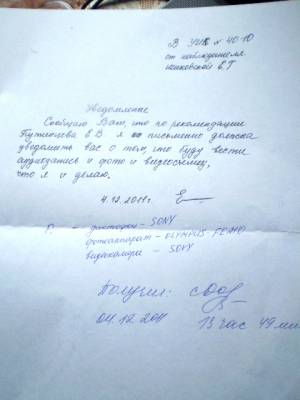 В УИК № 4010
от наблюдателя
В.Г
Уведомление
Сообщаю Вам, что по рекомендации
В.В я письменно должна
уведомить вас о том, что буду вести
аудиозапись и фото и видеосъемку,
что я и делаю.
4.12.2011г
- диктофон - SONY
фотоаппарат - OLYMPUS
видеокамера - SONY
Получил
04.12.2011 13 час 49 мин